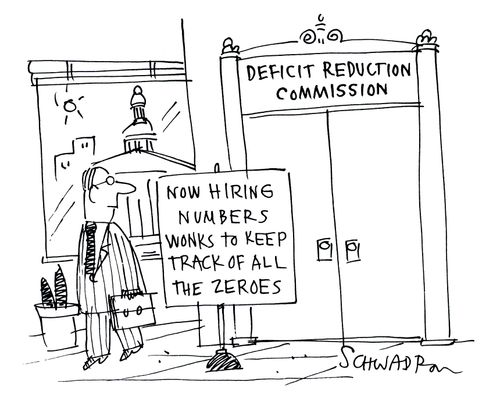 DEFICIT REDUCTION
COMMISSION
NOW HIRING
NUMBERS
WONKS TO KEEP
TRACK OF ALL
THE ZEROES
SCHWADRON